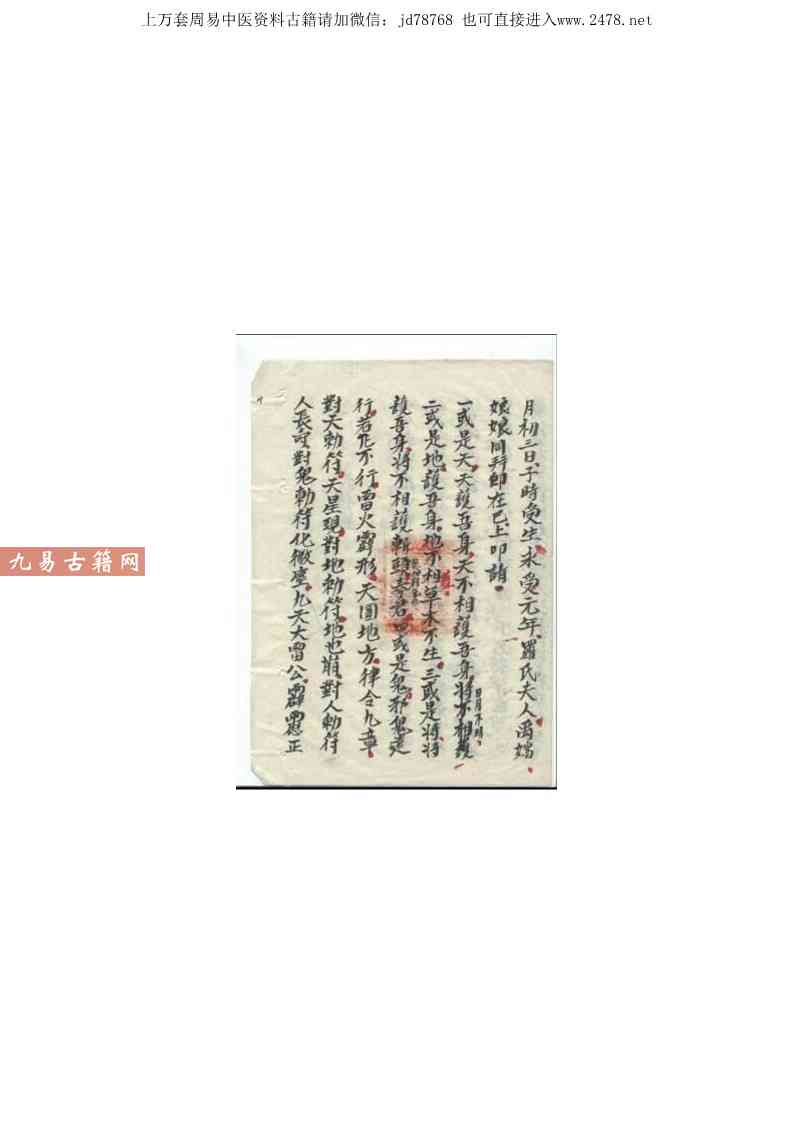 上万套周易中医资料古籍请加微信：jd78768 也可直接进入www.2478.net
月初三日子時受生求受元年羅氏夫人禹婿
娘娘同拜即在已上叩請
一或是天天護吾身天不相護吾身將不相護
日月不明
二或是地護吾身地不相草木不生三或是將將
護吾身將不相護斬頭李君四或是鬼邪鬼定
行若不行雷火霹形天圓地方律令九章
對天勅符天星現對地勅符地也崩對人勅符
人長可對鬼勅符化微塵九天大雷公霹靂正
九易古籍网